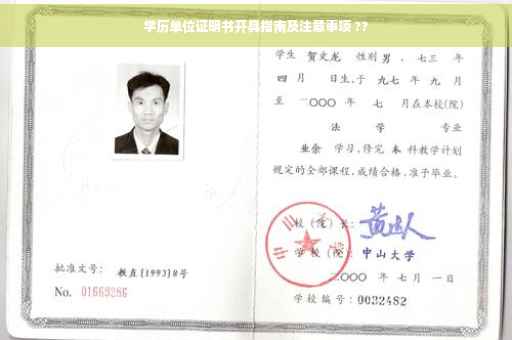 学历单位证明书开具指南及注意事项 ??
学生 贺文龙 性别 男 、七三 年
四 月 日生,于 九七 年 九 月
至 二〇〇〇 年 七 月在本校(院)
法 学 专业
业余 学习,修完 本 科教学计划
规定的全部课程,成绩合格,准予毕业。
校(院)长:
学校(院): 中山大学
二〇〇〇 年 七 月 一 日
学校编号: 0032482
批准文号: 教直[1993]8号
No. 01663286